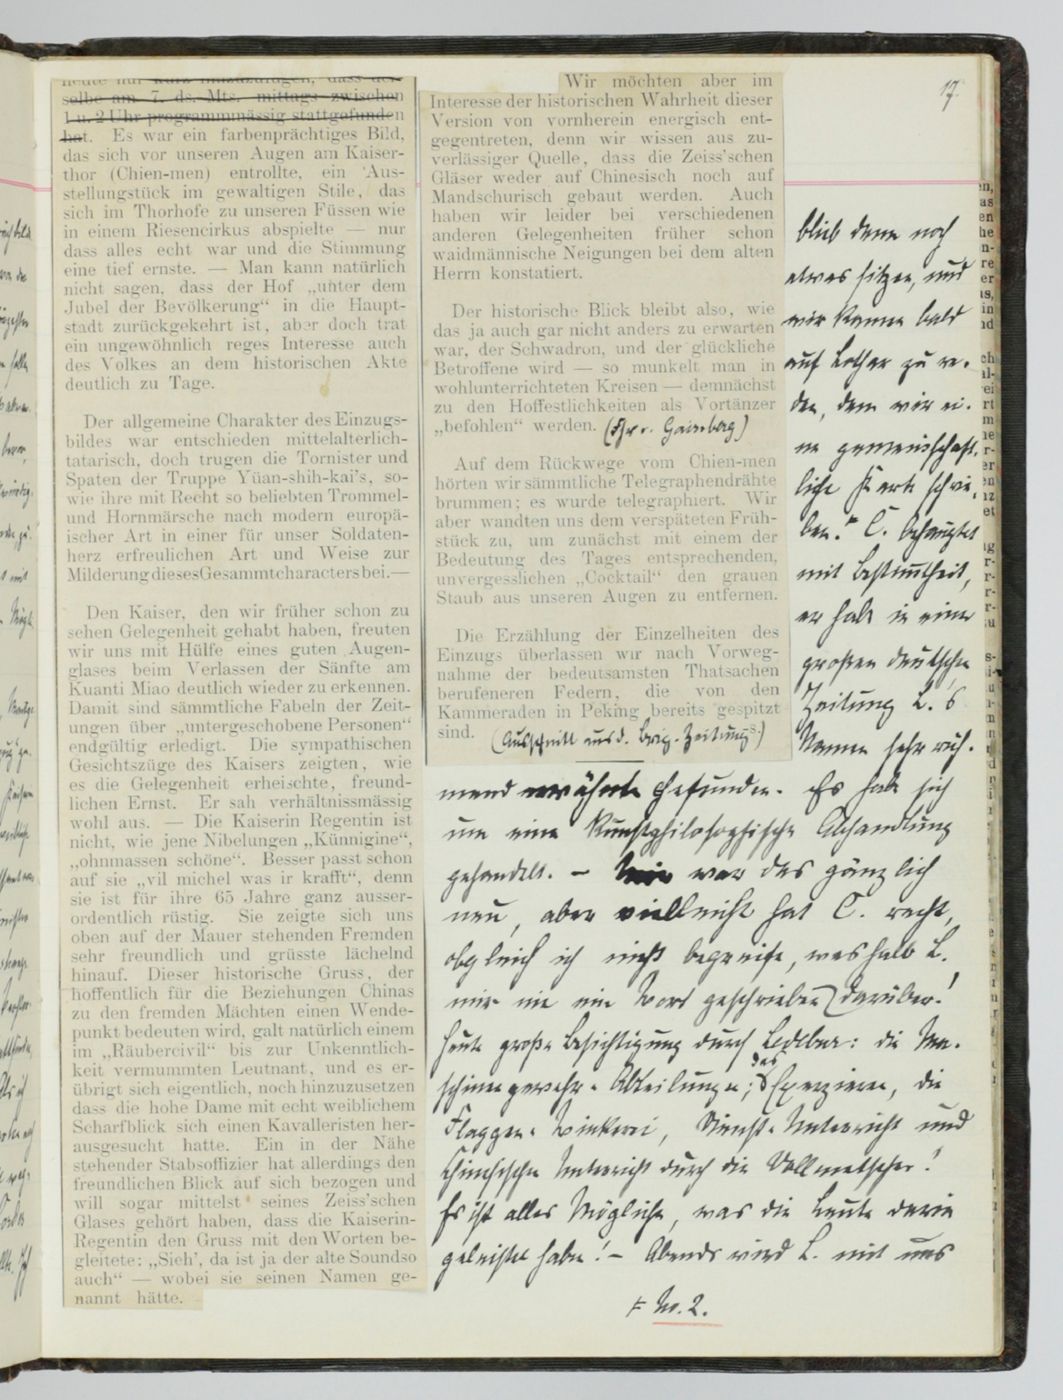 17.
heute nur kurz hinzuzufügen, dass der-
selbe am 7. ds. Mts. mittags zwischen
1 u. 2 Uhr programmmässig stattgefunden
hat. Es war ein farbenprächtiges Bild,
das sich vor unseren Augen am Kaiser-
thor (Chien-men) entrollte, ein Aus-
stellungstück im gewaltigen Stile, das
sich im Thorhofe zu unseren Füssen wie
in einem Riesencirkus abspielte — nur
dass alles echt war und die Stimmung
eine tief ernste. — Man kann natürlich
nicht sagen, dass der Hof „unter dem
Jubel der Bevölkerung“ in die Haupt-
stadt zurückgekehrt ist, aber doch trat
ein ungewöhnlich reges Interesse auch
des Volkes an dem historischen Akte
deutlich zu Tage.
Der allgemeine Charakter des Einzugs-
bildes war entschieden mittelalterlich-
tatarisch, doch trugen die Tornister und
Spaten der Truppe Yüan-shih-kai's, so-
wie ihre mit Recht so beliebten Trommel-
und Hornmärsche nach modern europä-
ischer Art in einer für unser Soldaten-
herz erfreulichen Art und Weise zur
Milderung dieses Gesammtcharacters bei.—
Den Kaiser, den wir früher schon zu
sehen Gelegenheit gehabt haben, freuten
wir uns mit Hülfe eines guten Augen-
glases beim Verlassen der Sänfte am
Kuanti Miao deutlich wieder zu erkennen.
Damit sind sämmtliche Fabeln der Zeit-
ungen über „untergeschobene Personen“
endgültig erledigt. Die sympathischen
Gesichtszüge des Kaisers zeigten, wie
es die Gelegenheit erheischte, freund-
lichen Ernst. Er sah verhältnissmässig
wohl aus. — Die Kaiserin Regentin ist
nicht, wie jene Nibelungen „Künnigine“,
„ohnmassen schöne“. Besser passt schon
auf sie „vil michel was ir krafft“, denn
sie ist für ihre 65 Jahre ganz ausser-
ordentlich rüstig. Sie zeigte sich uns
oben auf der Mauer stehenden Fremden
sehr freundlich und grüsste lächelnd
hinauf. Dieser historische Gruss, der
hoffentlich für die Beziehungen Chinas
zu den fremden Mächten einen Wende-
punkt bedeuten wird, galt natürlich einem
im „Räubercivil“ bis zur Unkenntlich-
keit vermummten Leutnant, und es er-
übrigt sich eigentlich, noch hinzuzusetzen
dass die hohe Dame mit echt weiblichem
Scharfblick sich einen Kavalleristen her-
ausgesucht hatte. Ein in der Nähe
stehender Stabsoffizier hat allerdings den
freundlichen Blick auf sich bezogen und
will sogar mittelst seines Zeiss'schen
Glases gehört haben, dass die Kaiserin-
Regentin den Gruss mit den Worten be-
gleitete: „Sieh', da ist ja der alte Soundso
auch“ — wobei sie seinen Namen ge-
nannt hätte.
Wir möchten aber im
Interesse der historischen Wahrheit dieser
Version von vornherein energisch ent-
gegentreten, denn wir wissen aus zu-
verlässiger Quelle, dass die Zeiss'schen
Gläser weder auf Chinesisch noch auf
Mandschurisch gebaut werden. Auch
haben wir leider bei verschiedenen
anderen Gelegenheiten früher schon
waidmännische Neigungen bei dem alten
Herrn konstatiert.
Der historische Blick bleibt also, wie
das ja auch gar nicht anders zu erwarten
war, der Schwadron, und der glückliche
Betroffene wird — so munkelt man in
wohlunterrichteten Kreisen — demnächst
zu den Hoffestlichkeiten als Vortänzer
„befohlen“ werden.
Auf dem Rückwege vom Chien-men
hörten wir sämmtliche Telegraphendrähte
brummen; es wurde telegraphiert. Wir
aber wandten uns dem verspäteten Früh-
stück zu, um zunächst mit einem der
Bedeutung des Tages entsprechenden,
unvergesslichen „Cocktail“ den grauen
Staub aus unseren Augen zu entfernen.
Die Erzählung der Einzelheiten des
Einzugs überlassen wir nach Vorweg-
nahme der bedeutsamsten Thatsachen
berufeneren Federn, die von den
Kammeraden in Peking bereits gespitzt
sind. (Ausschnitt aus d. Brig.-Zeitung.)
blieb denn noch
etwas sitzen, und
wir kamen bald
auf Lothar zu re-
den, dem wir ei-
ne gemeinschaft-
liche Karte schrie-
ben. C. behauptet
mit Bestimmtheit,
er habe in einer
großen deutschen
Zeitung L.'s
Namen sehr rüh-
mend erwähnt gefunden. Es habe sich
um eine kunstphilosophische Abhandlung
gehandelt. – Mir war das gänzlich
neu, aber vielleicht hat C. recht,
obgleich ich nicht begreife, weshalb L.
mir nie ein Wort geschrieben darüber!
Heute große Besichtigung durch Ledebur: die Ma-
schinengewehr-Abteilungen; das Exerzieren, die
Flaggen-Winkerei, Dienst-Unterricht und
Chinesischen Unterricht durch die Dollmetscher!
Es ist alles Mögliche, was die Leute darin
geleistet haben! – Abends wird L. mit uns
No. 2.